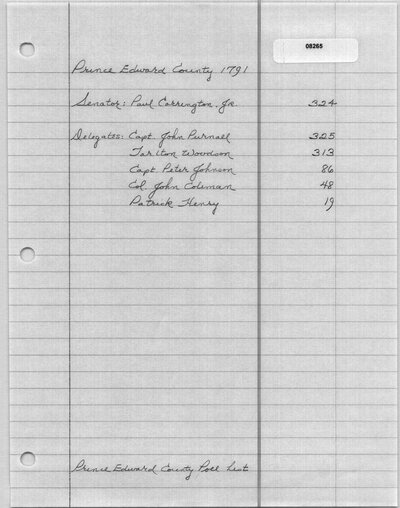 08265
Prince Edward County 1791
Senator: Paul Carrington, Jr. 324
Delegates: Capt. John Purnall 325
Tarlton Woodson 313
Capt Peter Johnson 86
Col. John Coleman 48
Patrick Henry 19
Prince Edward County Poll List